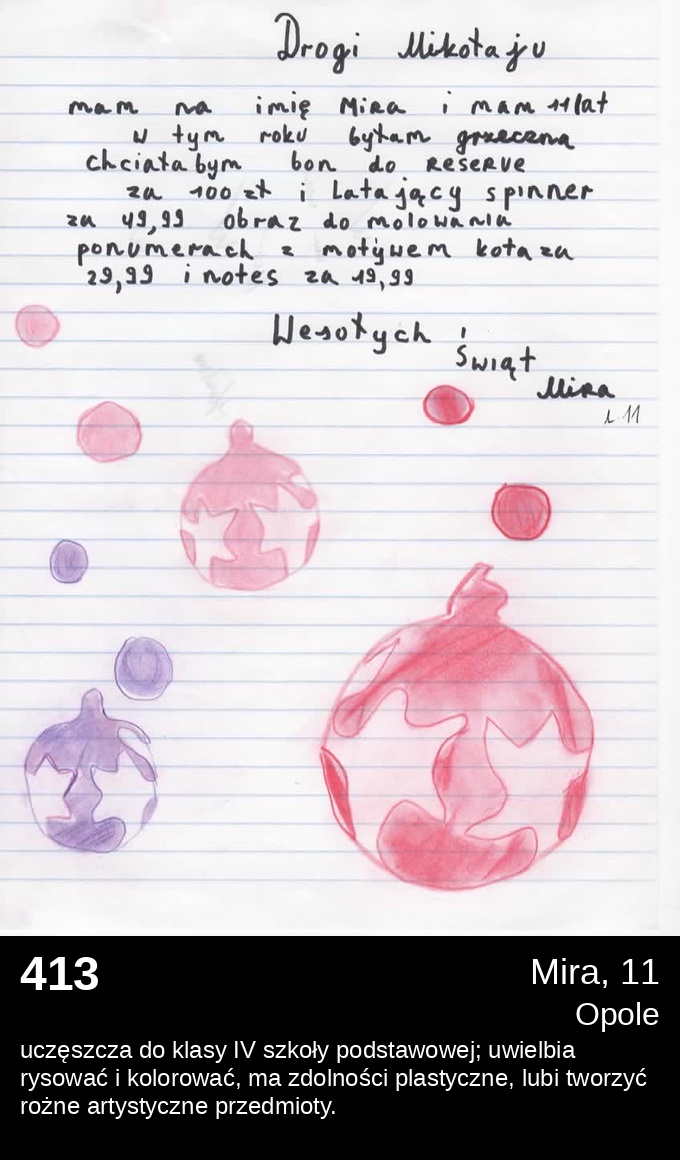 Drogi Mikołaju
mam na imię Mira i mam 11 lat
w tym roku byłam grzeczna
chciała bym bon do RESERVE
za 100 zł i Latający spinner
za 49,99 obraz do molowania
ponumerach z motywem kota za
29,99 i notes za 19,99
Wesołych
Świąt
Mira
l. 11
413
Mira, 11
Opole
uczęszcza do klasy IV szkoły podstawowej; uwielbia
rysować i kolorować, ma zdolności plastyczne, lubi tworzyć
rożne artystyczne przedmioty.